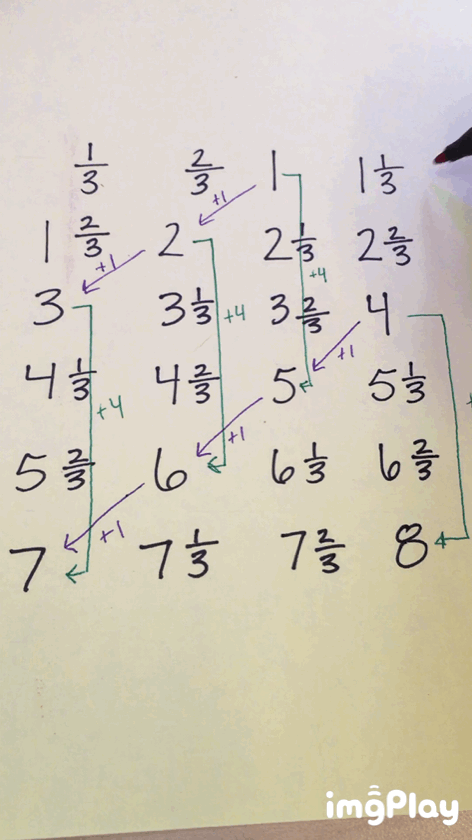 1/3 2/3 1 1 1/3
1 2/3 2 2 1/3 2 2/3
3 3 1/3 3 2/3 4
4 1/3 4 2/3 5 5 1/3
5 2/3 6 6 1/3 6 2/3
7 7 1/3 7 2/3 8
+1
+1
+4
+4
+1
+4
+1
+1
imgPlay